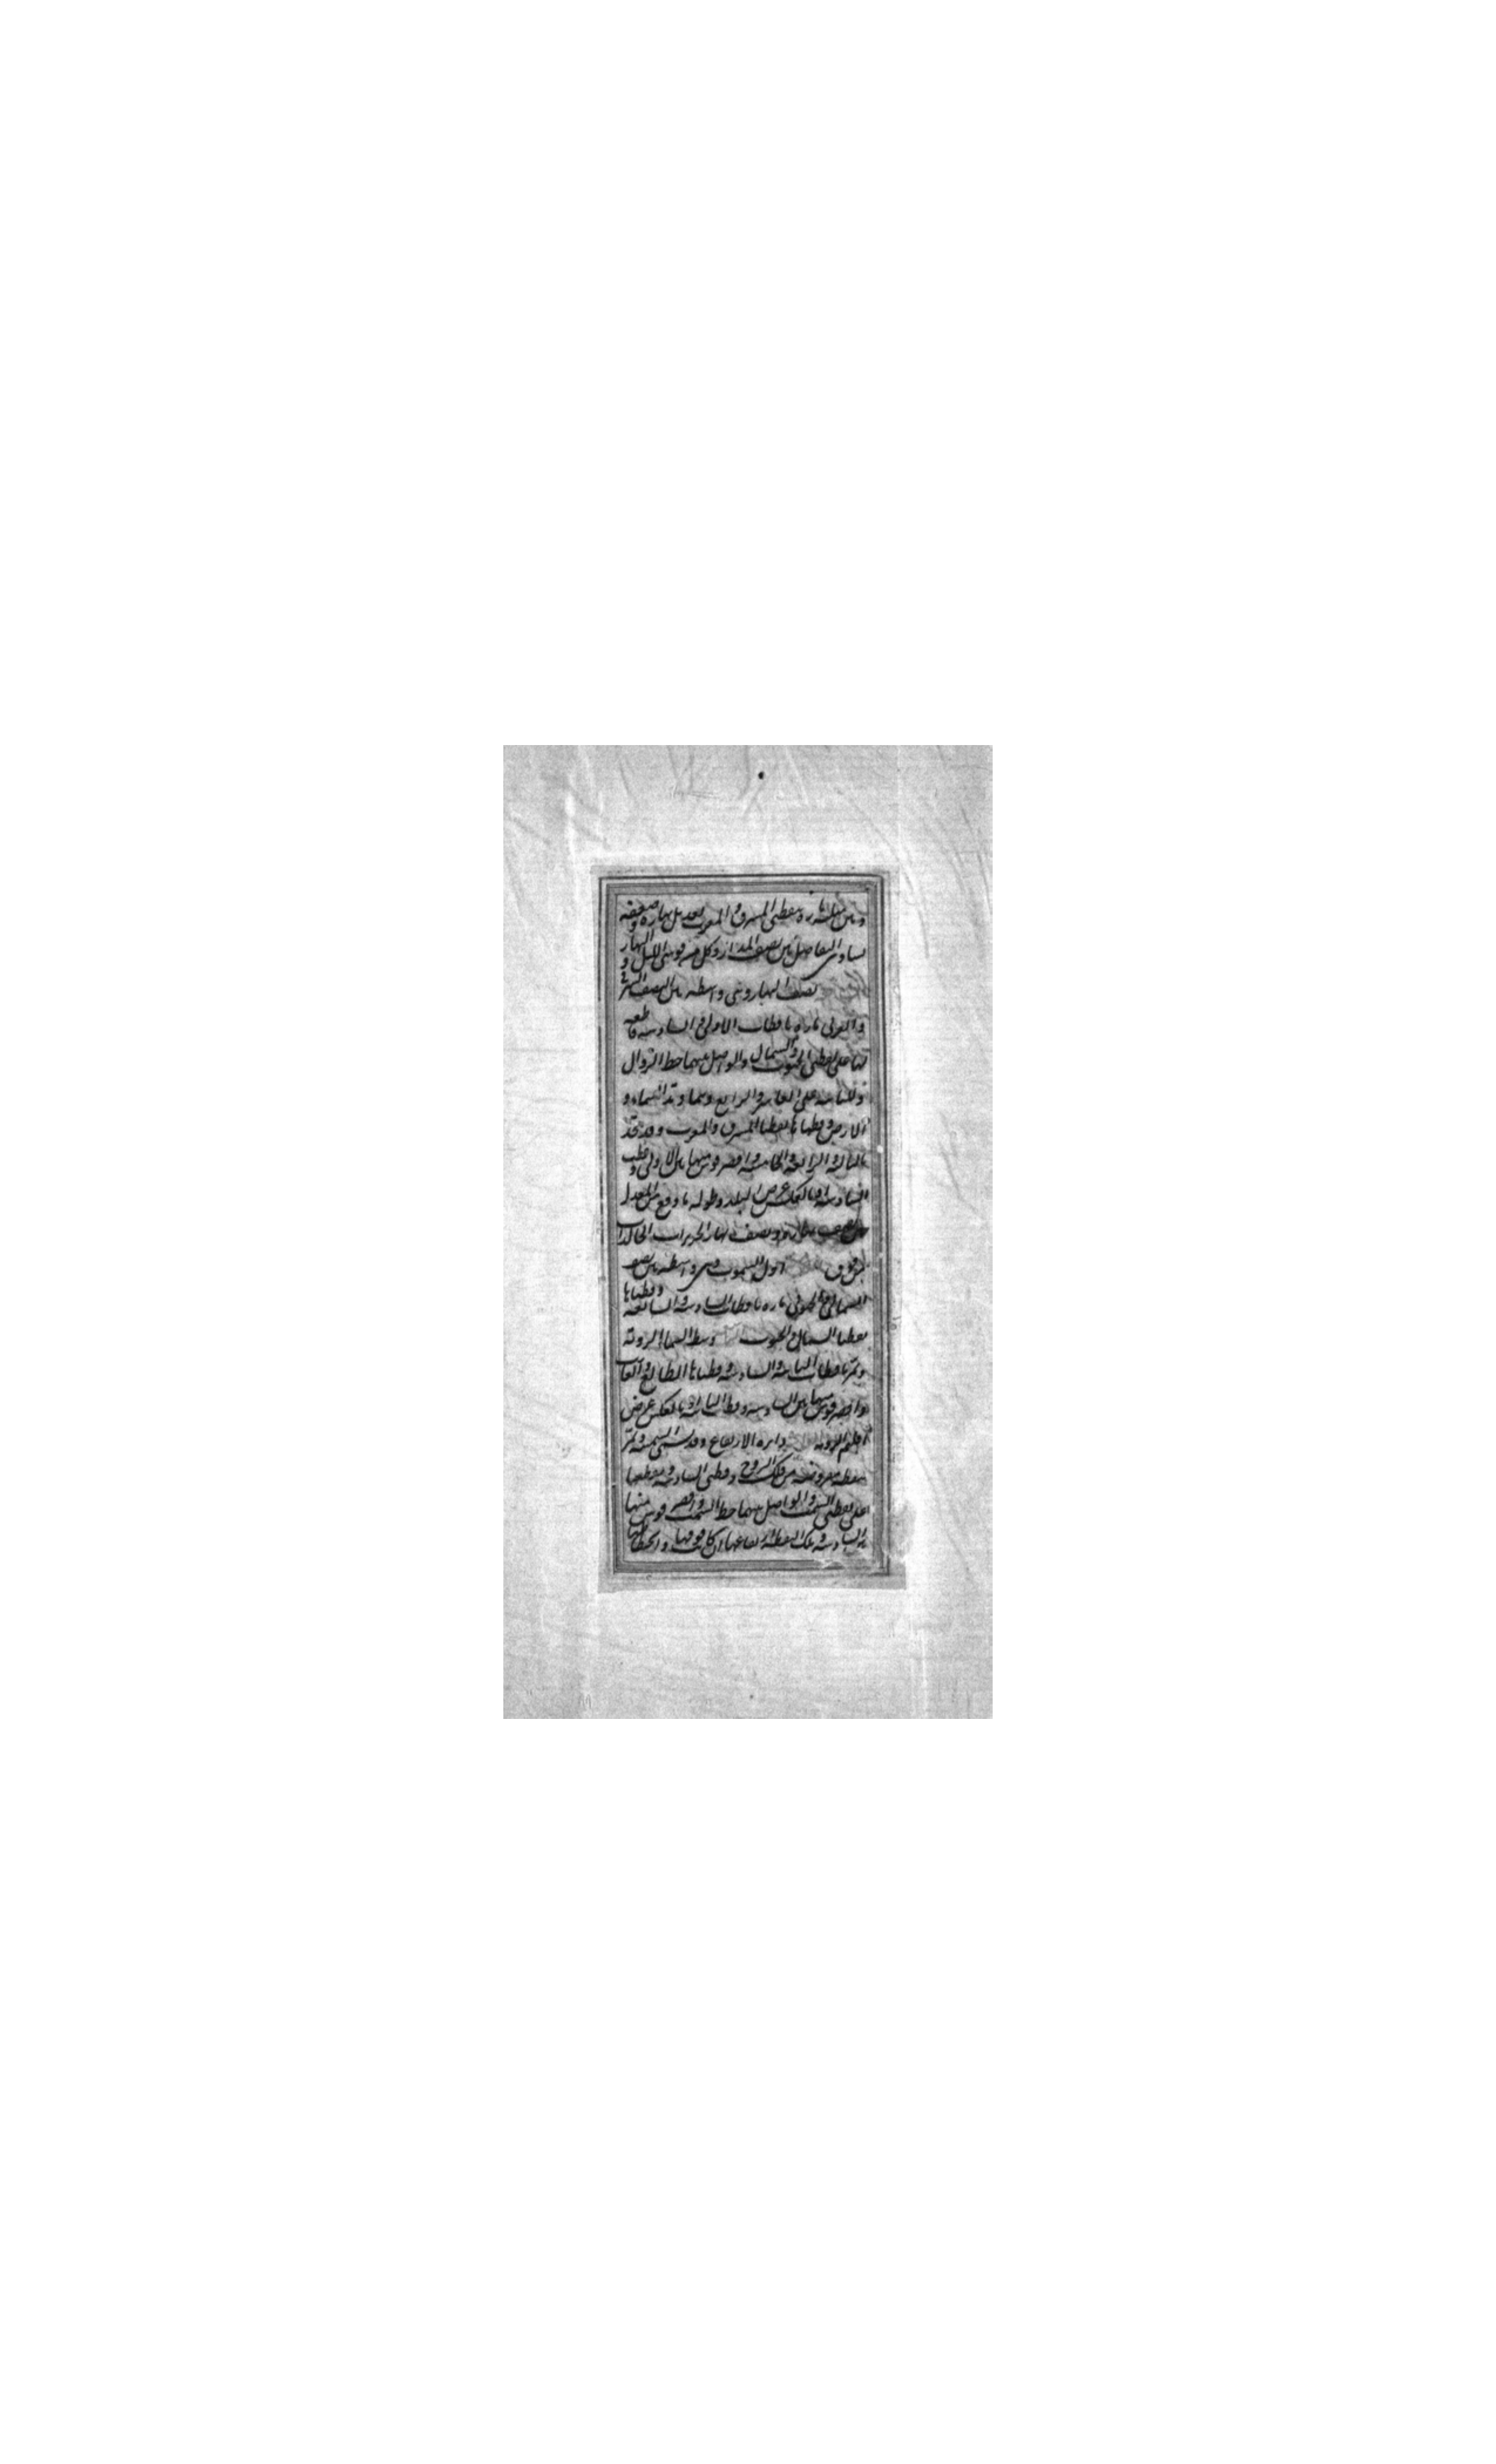 وبين مداره ونقطتي المشرق والمغرب تعديل نهاره وضعفه
يساوي التفاضل بين نصف المدار وكل من قوسي الليل والنهار و
نصف النهار وهي واسطه بين النصف الشرقي
والغربي ماره باقطاب الاولى والسادسه قاطعه
لها على نقطتي الجنوب والشمال والواصل بينهما خط الزوال
وللثامنه على العاشر والرابع وهما وتد السماء و
الارض وقطباها نقطتا المشرق والمغرب وقد تتحد
بالثالثه والرابعه والخامسه واقصر قوس منها بين الاولى وقطب
السادسه او بالعكس عرض البلد وطوله ما وقع من المعدل
بين ونصف نهار الجزائر الخالدات
اول السموت وهي واسطه بين نصف
الشمالي والجنوبي ماره باقطاب السادسه والسابعه وقطباها
نقطتا الشمال والجنوب وسط السماء الرويه
وتمر باقطاب الثامنه والسادسه وقطباها الطالع والغارب
واقصر قوس منها بين السادسه وقطب الثامنه او بالعكس عرض
اقليم الرويه دايره الارتفاع وقد تسمى السمتيه وتمر
بنقطه مفروضه من فلك البروج وقطبي السادسه وتقطعها
على نقطتي السمت والواصل بينهما خط السمت واقصر قوس منها
بين السادسه وتلك النقطه ارتفاعها ان كانت فوقها وانحطاطها